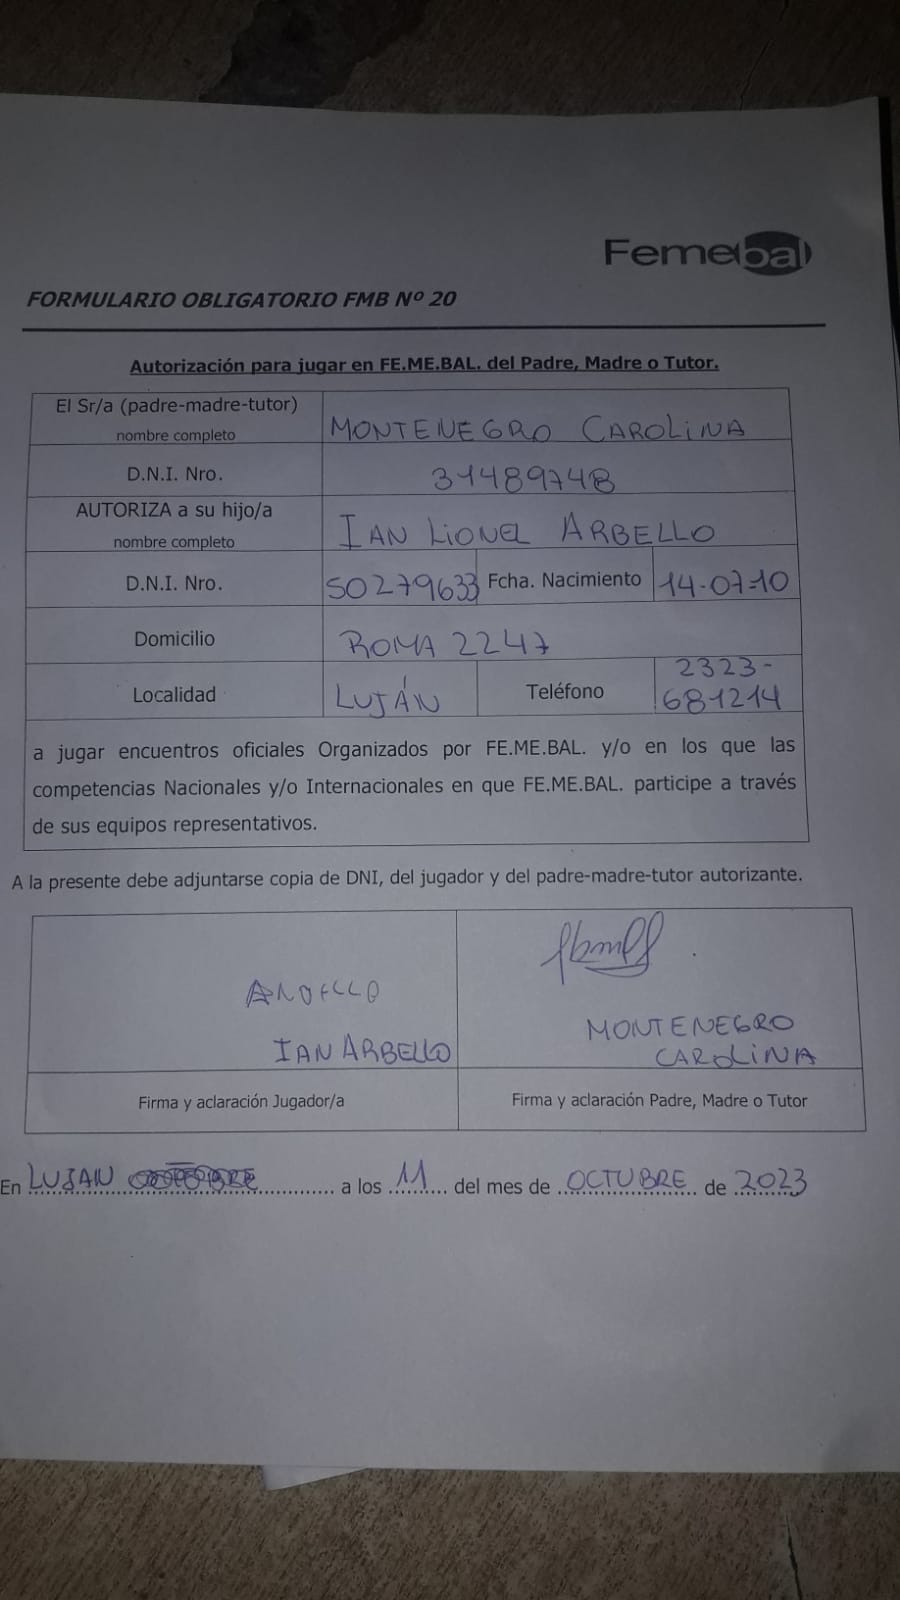 Femebal
FORMULARIO OBLIGATORIO FMB Nº 20
Autorización para jugar en FE.ME.BAL. del Padre, Madre o Tutor.
El Sr/a (padre-madre-tutor)
nombre completo
MONTENEGRO CAROLINA
D.N.I. Nro.
31489748
AUTORIZA a su hijo/a
nombre completo
IAN LIONEL ARBELLO
D.N.I. Nro.
50279633
Fcha. Nacimiento
14-07-10
Domicilio
ROMA 2247
Localidad
LUJÁN
Teléfono
2323-
681214
a jugar encuentros oficiales Organizados por FE.ME.BAL. y/o en los que las
competencias Nacionales y/o Internacionales en que FE.ME.BAL. participe a través
de sus equipos representativos.
A la presente debe adjuntarse copia de DNI, del jugador y del padre-madre-tutor autorizante.
IAN ARBELLO
MONTENEGRO
CAROLINA
Firma y aclaración Jugador/a
Firma y aclaración Padre, Madre o Tutor
En LUJAN a los 11 del mes de OCTUBRE de 2023